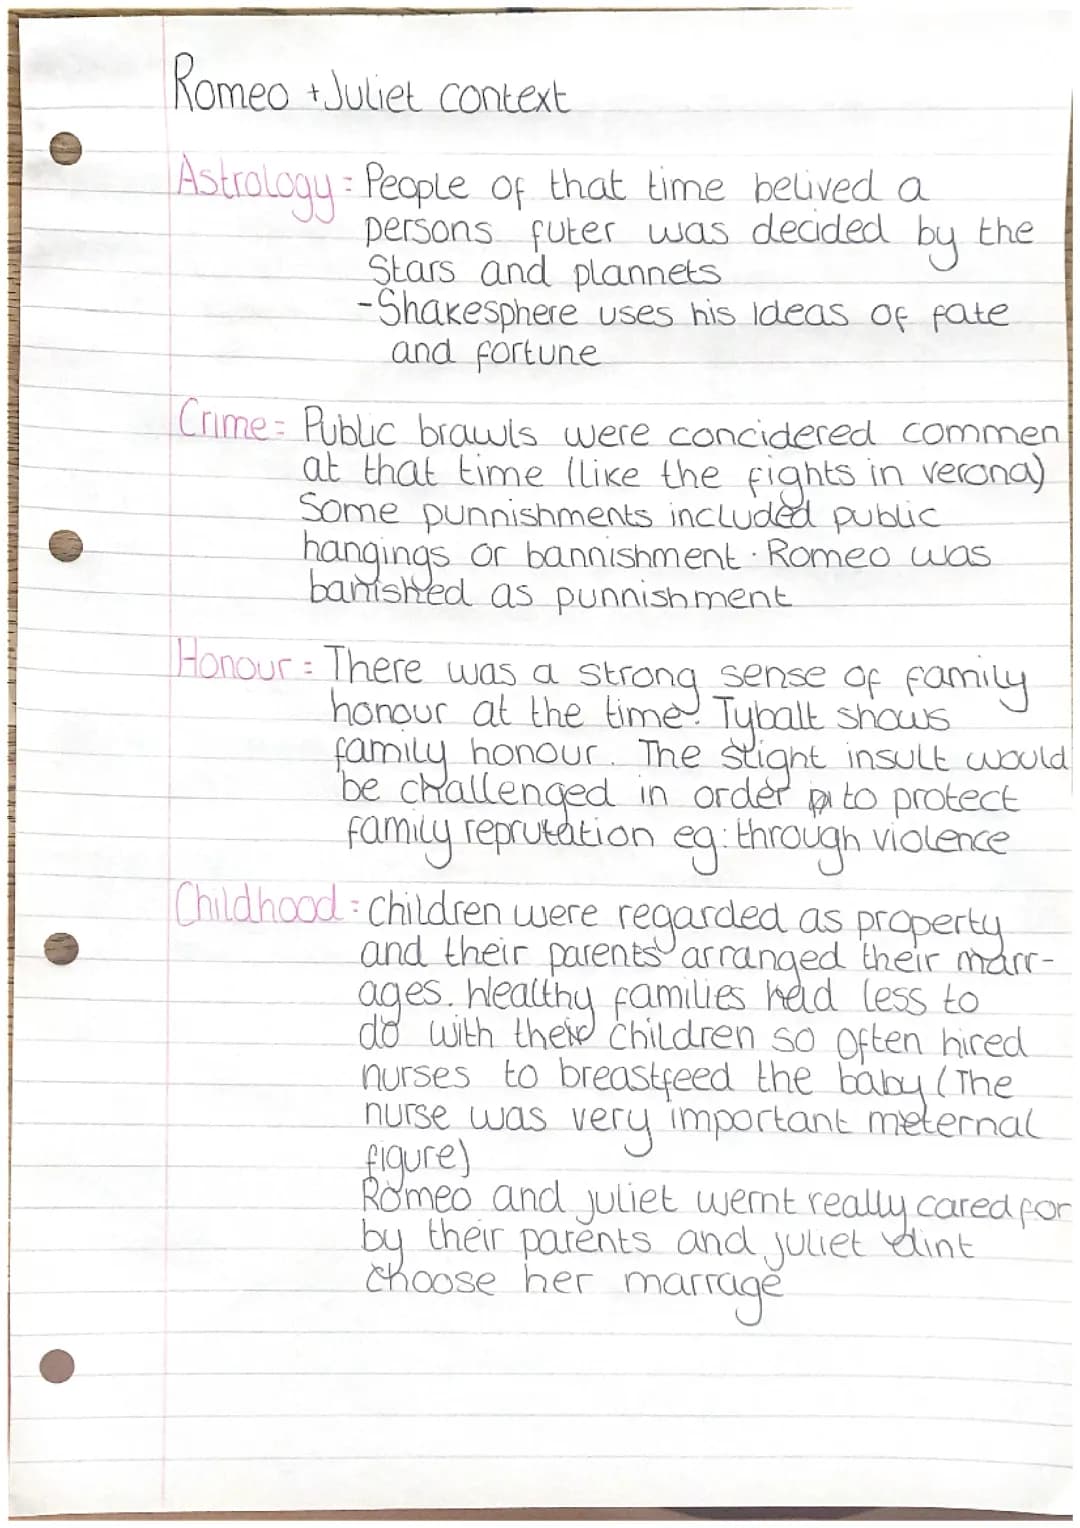 Romeo + Juliet context
Astrology = People of that time belived a
persons futer was decided by the
Stars and plannets
- Shakesphere uses his ideas of fate
and fortune
Crime = Public brawls were concidered commen
at that time (like the fights in verona)
Some punnishments included public
hangings or bannishment. Romeo was
banished as punnishment
Honour = There was a strong sense of family
honour at the time. Tybalt shows
family honour. The slight insult would
be challenged in order to protect
family reprutation eg: through violence
Childhood = Children were regarded as property
and their parents arranged their marr-
ages. Wealthy families had less to
do with their children so often hired
nurses to breastfeed the baby (The
nurse was very important meternal
figure)
Romeo and juliet wernt really cared for
by their parents and juliet dint
choose her marrage